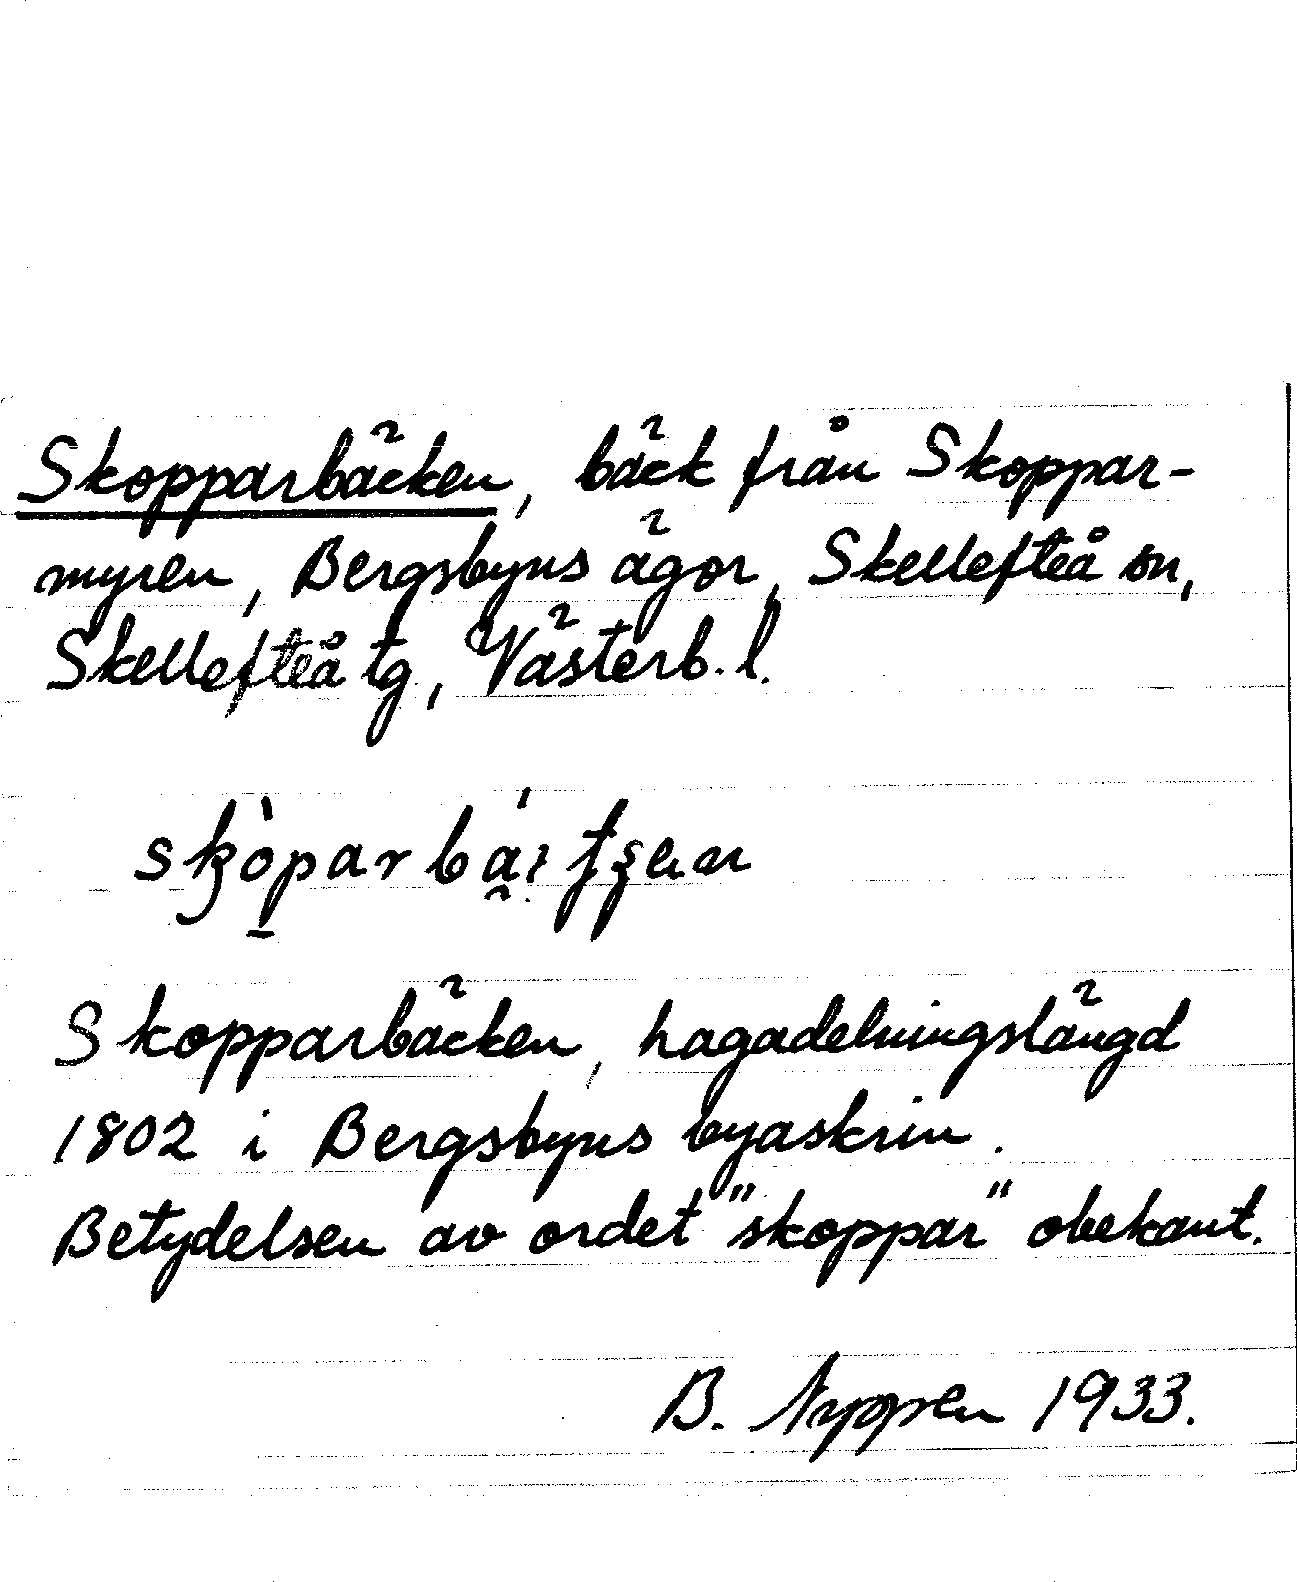 Skopparbäcken, bäck från Skoppar-
myren, Bergsbyns ägor, Skellefteå sn,
Skellefteå tg, Västerb. l.
Skopparbäcken, hagadelningslängd
1802 i Bergsbyns byaskrin.
Betydelsen av ordet "skoppar" obekant.
B. Nygren 1933.